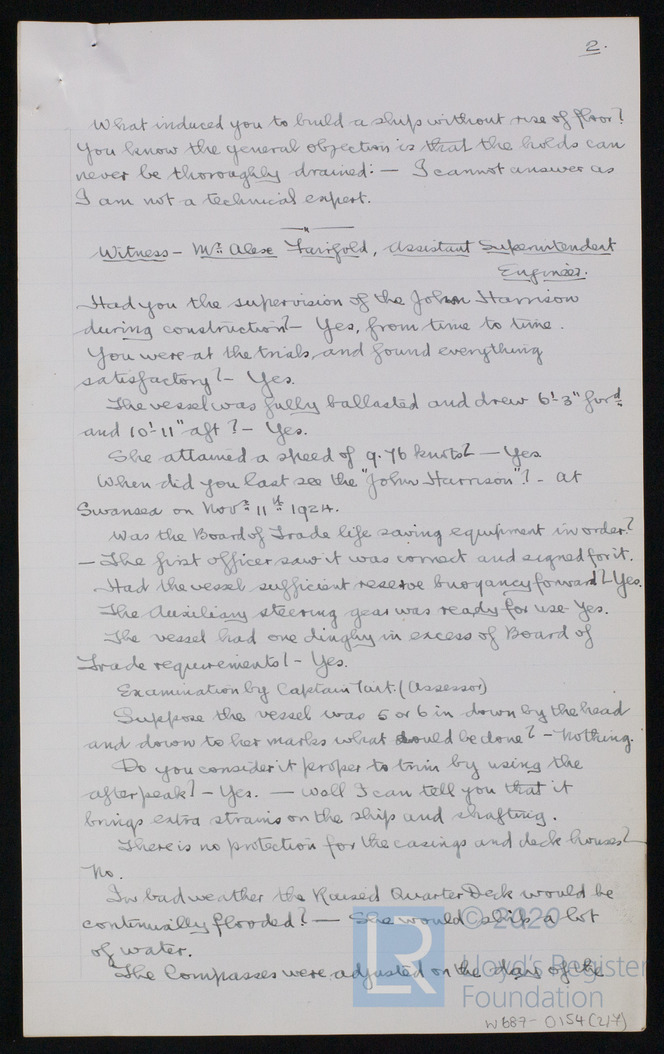 2.
What induced you to build a ship without rise of floor?
You know the general objection is that the holds can
never be thoroughly drained:- I cannot answer as
I am not a technical expert.
Witness - Mr. Alex Fairfold, Assistant Superintendent
Engineer.
Had you the supervision of the John Harrison
during construction?- Yes, from time to time.
You were at the trials, and found everything
satisfactory?- Yes.
The vessel was fully ballasted and drew 6'-3" ford.
and 10'-11" aft?- Yes.
She attained a speed of 9.76 knots? - Yes
When did you last see the "John Harrison"?- At
Swansea on Novr. 11th 1924.
Was the Board of Trade life saving equipment in order?
- The first officer saw it was correct and signed for it.
Had the vessel sufficient reserve buoyancy forward?-Yes.
The Auxiliary steering gear was ready for use- Yes.
The vessel had one dinghy in excess of Board of
Trade requirements?- Yes.
Examination by Captain Tait. (Assessor)
Suppose the vessel was 5 or 6 in down by the head
and down to her marks what could be done? - Nothing.
Do you consider it proper to trim by using the
after peak?- Yes. - Well I can tell you that it
brings extra strains on the ship and shafting.
There is no protection for the casings and deck houses?-
No.
In bad weather the Raised Quarter Deck would be
continually flooded? - She would ship a lot
of water.
The Compasses were adjusted on the day of the
© 2020
LR
Lloyd's Register
Foundation
W687-0154(2/7)